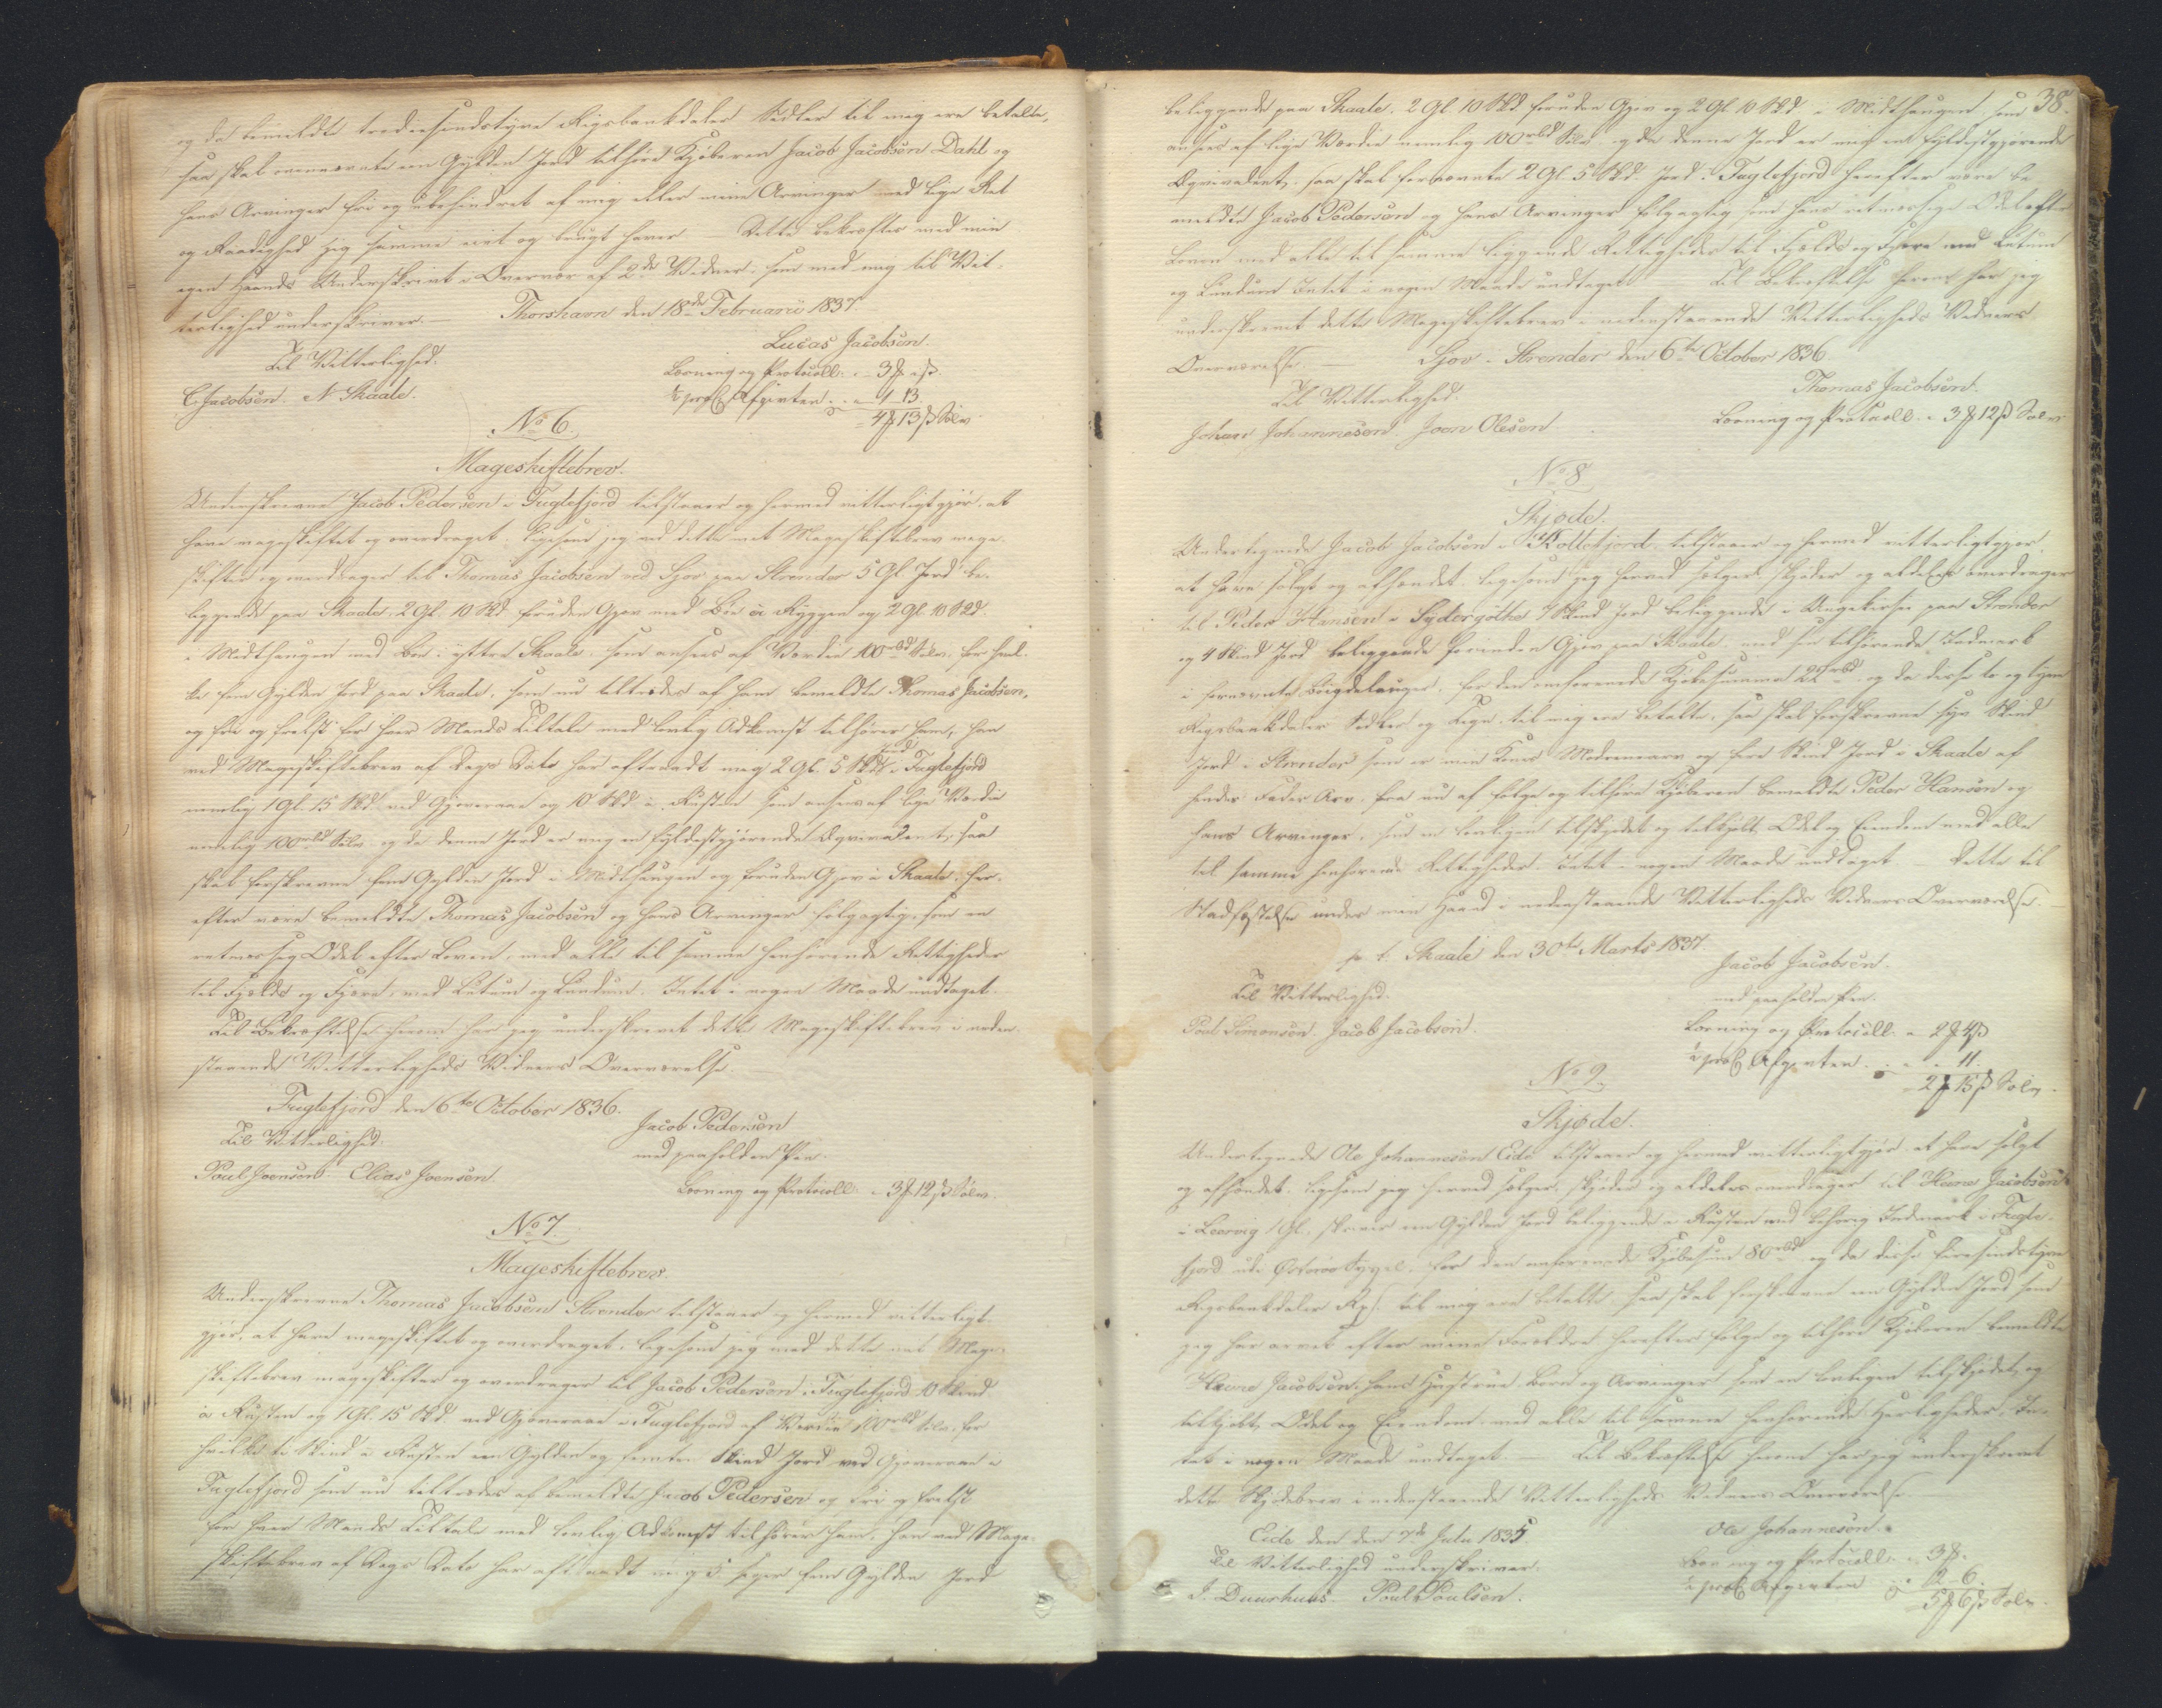 og da bemeldte trediesindstyve Rigsbankdaler Sedler til mig ere betalte,
saa skal ovennævnte een Gylden Jord tilhøre Kjøberen Jacob Jacobsen Dahl og
hans Arvinger fri og ubehindret af mig eller mine Arvinger med lige Ret
og Raadighed jeg samme eiet og brugt haver. — Dette bekræftes med min
egen Haands Underskrivt i Overvær af 2de Vidner, som med mig til Vit-
terlighed underskriver. — Thorshavn den 18de Februarii 1837.
Lucas Jacobsen.
Til Vitterlighed.
Læsning og Protocoll. „ 3 „ ß.
C. Jacobsen. N Skaale.
½ proC. Afgivten „ 1 13.
4 13 ß Sølv
No 6.
Mageskiftebrev.
Underskrevne Jacob Pedersen i Fuglefjord tilstaaer og hermed vitterligtgjør, at
have mageskiftet og overdraget, ligesom jeg ved dette mit Mageskiftebrev mage-
skifter og overdrager til Thomas Jacobsen ved Sjov paa Strender 5 Gl. Jord be-
liggende paa Skaale, 2 Gl. 10 Skd foruden Gjov med Bøe á Ryggen og 2 Gl. 10 Skd.
i Midthaugen med Bøe i yttre Skaale, som ansees af Værdie 100 rbd Sølv, for hvil-
ke fem Gylden Jord paa Skaale, som nu tiltrædes af ham bemeldte Thomas Jacobsen,
og frie og frelst for hver Mands Tiltale med lovlig Adkomst tilhører ham, han
ved Mageskiftebrev af Dags Dato har aftraadt mig 2 Gl. 5 Skd Jord i Fuglefjord
nemlig 1 Gl. 15 Skd. ved Gjoveraae og 10 Skd. á Rusten som ansees af lige Værdie
nemlig 100 rbd Sølv og da denne Jord er mig en fyldestgjørende Æqvivalent, saa
skal forskrevne fem Gylden Jord i Midthaugen og foruden Gjov i Skaale, her-
efter være bemeldte Thomas Jacobsen og hans Arvinger følgagtig, som en
retmæssig Odel efter Loven, med alle til samme henhørende Rettigheder
til Fjelds og Fjære, med Lutum og Lundum. Intet i nogen Maade undtaget.
Til Bekræftelse herom har jeg underskrevet dette Mageskiftebrev i neden-
staaende Vitterligheds Vidners Overværelse.
Fuglefjord den 6te October 1836.
Jacob Pedersen
Til Vitterlighed.
med paaholden Pen.
Poul Joensen. Elias Joensen.
Læsning og Protocoll. „ 3 12 ß Sølv.
No 7.
Mageskiftebrev.
Underskrevne Thomas Jacobsen Strender tilstaaer og hermed vitterligt-
gjør, at have mageskiftet og overdraget, ligesom jeg med dette mit Mage-
skiftebrev mageskifter og overdrager til Jacob Pedersen i Fuglefjord 10 Skind
á Rusten og 1 Gl. 15 Skd. ved Gjoveraae i Fuglefjord af Værdie 100 rbd Sølv, for
hvilke ti Skind á Rusten een Gylden og femten Skind Jord ved Gjoveraae i
Fuglefjord som nu tiltrædes af bemeldte Jacob Pedersen og fri og frelst
for hver Mands Tiltale med lovlig Adkomst tilhører ham, han ved Mage-
skiftebrev af Dags Dato har aftraadt mig 5 siger fem Gylden Jord
38.
beliggende paa Skaale, 2 Gl. 10 Skd. foruden Gjov og 2 Gl. 10 Skd. i Midthaugen, som
ansees af lige Værdie nemlig 100 rbd Sølv og da denne Jord er mig en fyldestgjørende
Æqvivalent, saa skal fornævnte 2 Gl. 5 Skd. Jord i Fuglefjord herefter være be-
meldte Jacob Pedersen og hans Arvinger følgagtig som hans retmæssige Odel efter
Loven med alle til samme liggende Rettigheder til Fjelds og Fjære med Lutum
og Lundum Intet i nogen Maade undtaget. — Til Bekræftelse herom har jeg
underskrevet dette Mageskiftebrev i nedenstaaende Vitterligheds Vidners
Overværelse. — Sjov - Strender den 6te October 1836.
Thomas Jacobsen.
Til Vitterlighed.
Læsning og Protocoll. „ 3 12 ß Sølv
Johan Johannesen. Joen Olesen
No 8.
Skjøde.
Undertegnede Jacob Jacobsen i Kollefjord, tilstaaer og hermed vitterligtgjør,
at have solgt og afhændet, ligesom jeg herved sælger, skjøder og aldeles overdrager
til Peder Hansen i Sydergøthe 7 Skind Jord beliggende i Ungekersie paa Strender
og 4 Skind Jord beliggende forinden Gjov paa Skaale, med sin tilhørende Indmark
i fornævnte Bøigdelauger, for den omforenede Kjøbesumma 22 rbd. og da disse to og tyve
Rigsbankdaler Sedler og Tegn til mig ere betalte, saa skal forskrevne syv Skind
Jord i Strender som er min Kones Mødrenearv og fire Skind Jord i Skaale af
hendes Fædre Arv, fra nu af følge og tilhøre Kjøberen bemeldte Peder Hansen og
hans Arvinger, som en lovligen tilskjødet og tilkjøbt Odel og Eiendom med alle
til samme henhørende Rettigheder. Intet i nogen Maade undtaget. Dette til
Stadfæstelse under min Haand i nedenstaaende Vitterligheds Vidners Overværelse. —
p. t. Skaale den 30te Marts 1837.
Jacob Jacobsen.
Til Vitterlighed.
med paaholden Pen.
Poul Simonsen. Jacob Jacobsen.
Læsning og Protocoll. „ 2 4 ß
½ proC. Afgivten. „ „ 11.
2 15 ß Sølv.
No 9.
Skjøde.
Undertegnede Ole Johannesen Eide tilstaaer og hermed vitterligtgjør, at have solgt
og afhændet, ligesom jeg herved sælger, skjøder og aldeles overdrager til Jacobsen
i Leervig 1 Gl., skriver een Gylden Jord beliggende á Rusten med behørig Indmark i Fugle-
fjord udi Østerøe Syssel, for den omforenede Kjøbesum 80 rbd og da disse firesindstyve
Rigsbankdaler til mig ere betalte, saa skal forskrevne een Gylden Jord som
jeg har arvet efter mine Forældre herefter følge og tilhøre Kjøberen bemeldte
Jacobsen, hans Hustrue, Børn og Arvinger som en lovligen tilskjødet og
tilkjøbt Odel og Eiendom med alle til samme henhørende Herligheder. In-
tet i nogen Maade undtaget. — Til Bekræftelse herom har jeg underskrevet
dette Skjødebrev i nedenstaaende Vitterligheds Vidners Overværelse
Eide den den 7de Julii 1835.
Ole Johannesen.
Til Vitterlighed underskriver.
Læsning og Protocoll. „ 3 „
½ proC. Afgivten „ 2 6.
J. Duurhuus. Poul Poulsen.
5 6 ß Sølv.